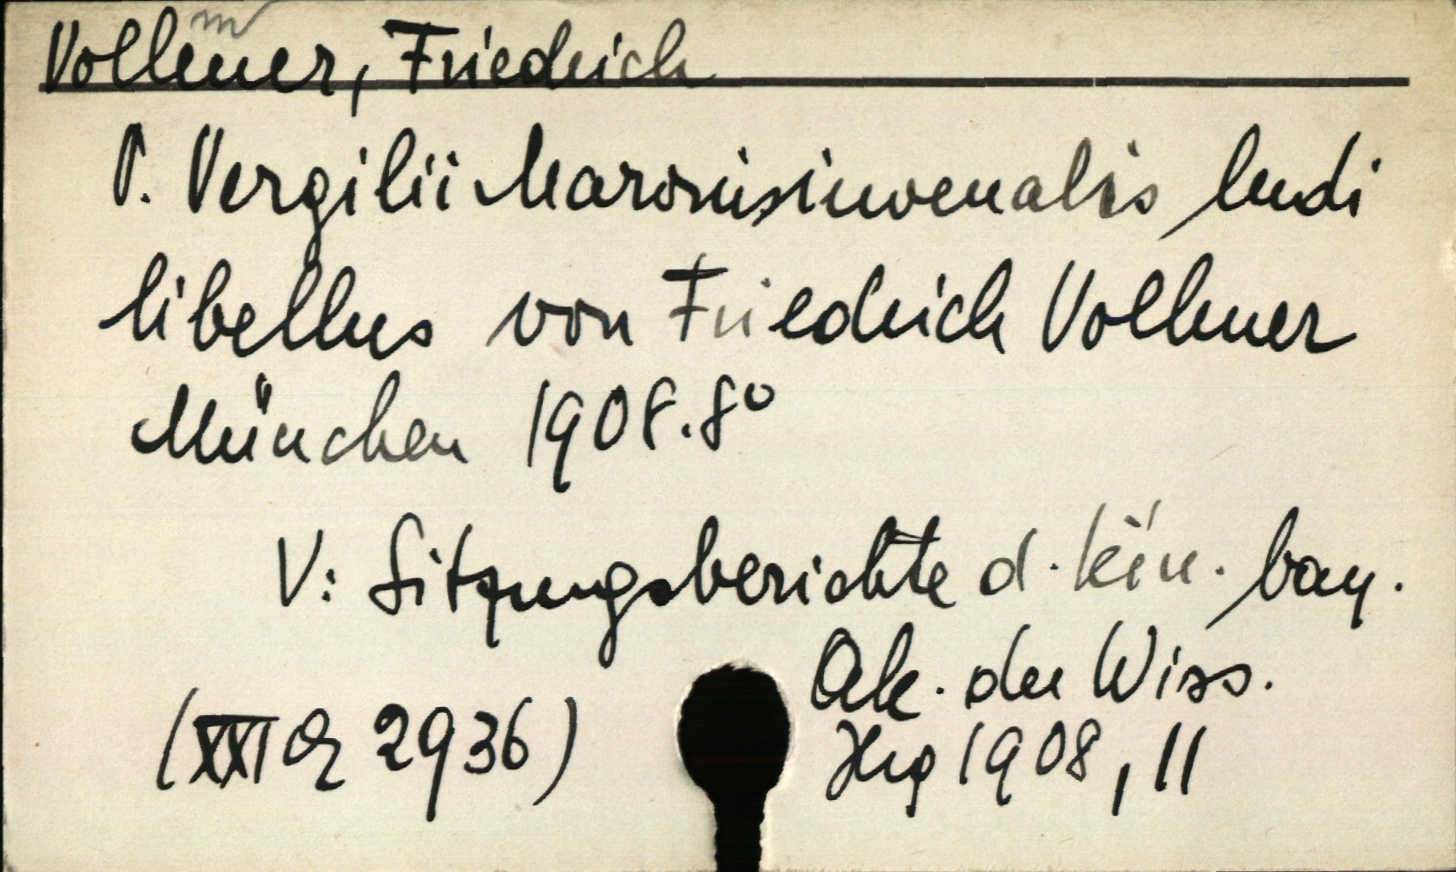 Vollmer, Friedrich
P. Vergilii Maronis iuvenalis ludi
libellus von Friedrich Vollmer
München 1908. 8°
V: Sitzungsberichte d. kön. bay.
Ak. der Wiss.
(XXI Q 2936)
Jhg 1908, 11